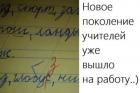 спорт, за
ланды
глобус, ни
Новое
поколение
учителей
уже
вышло
на работу..)